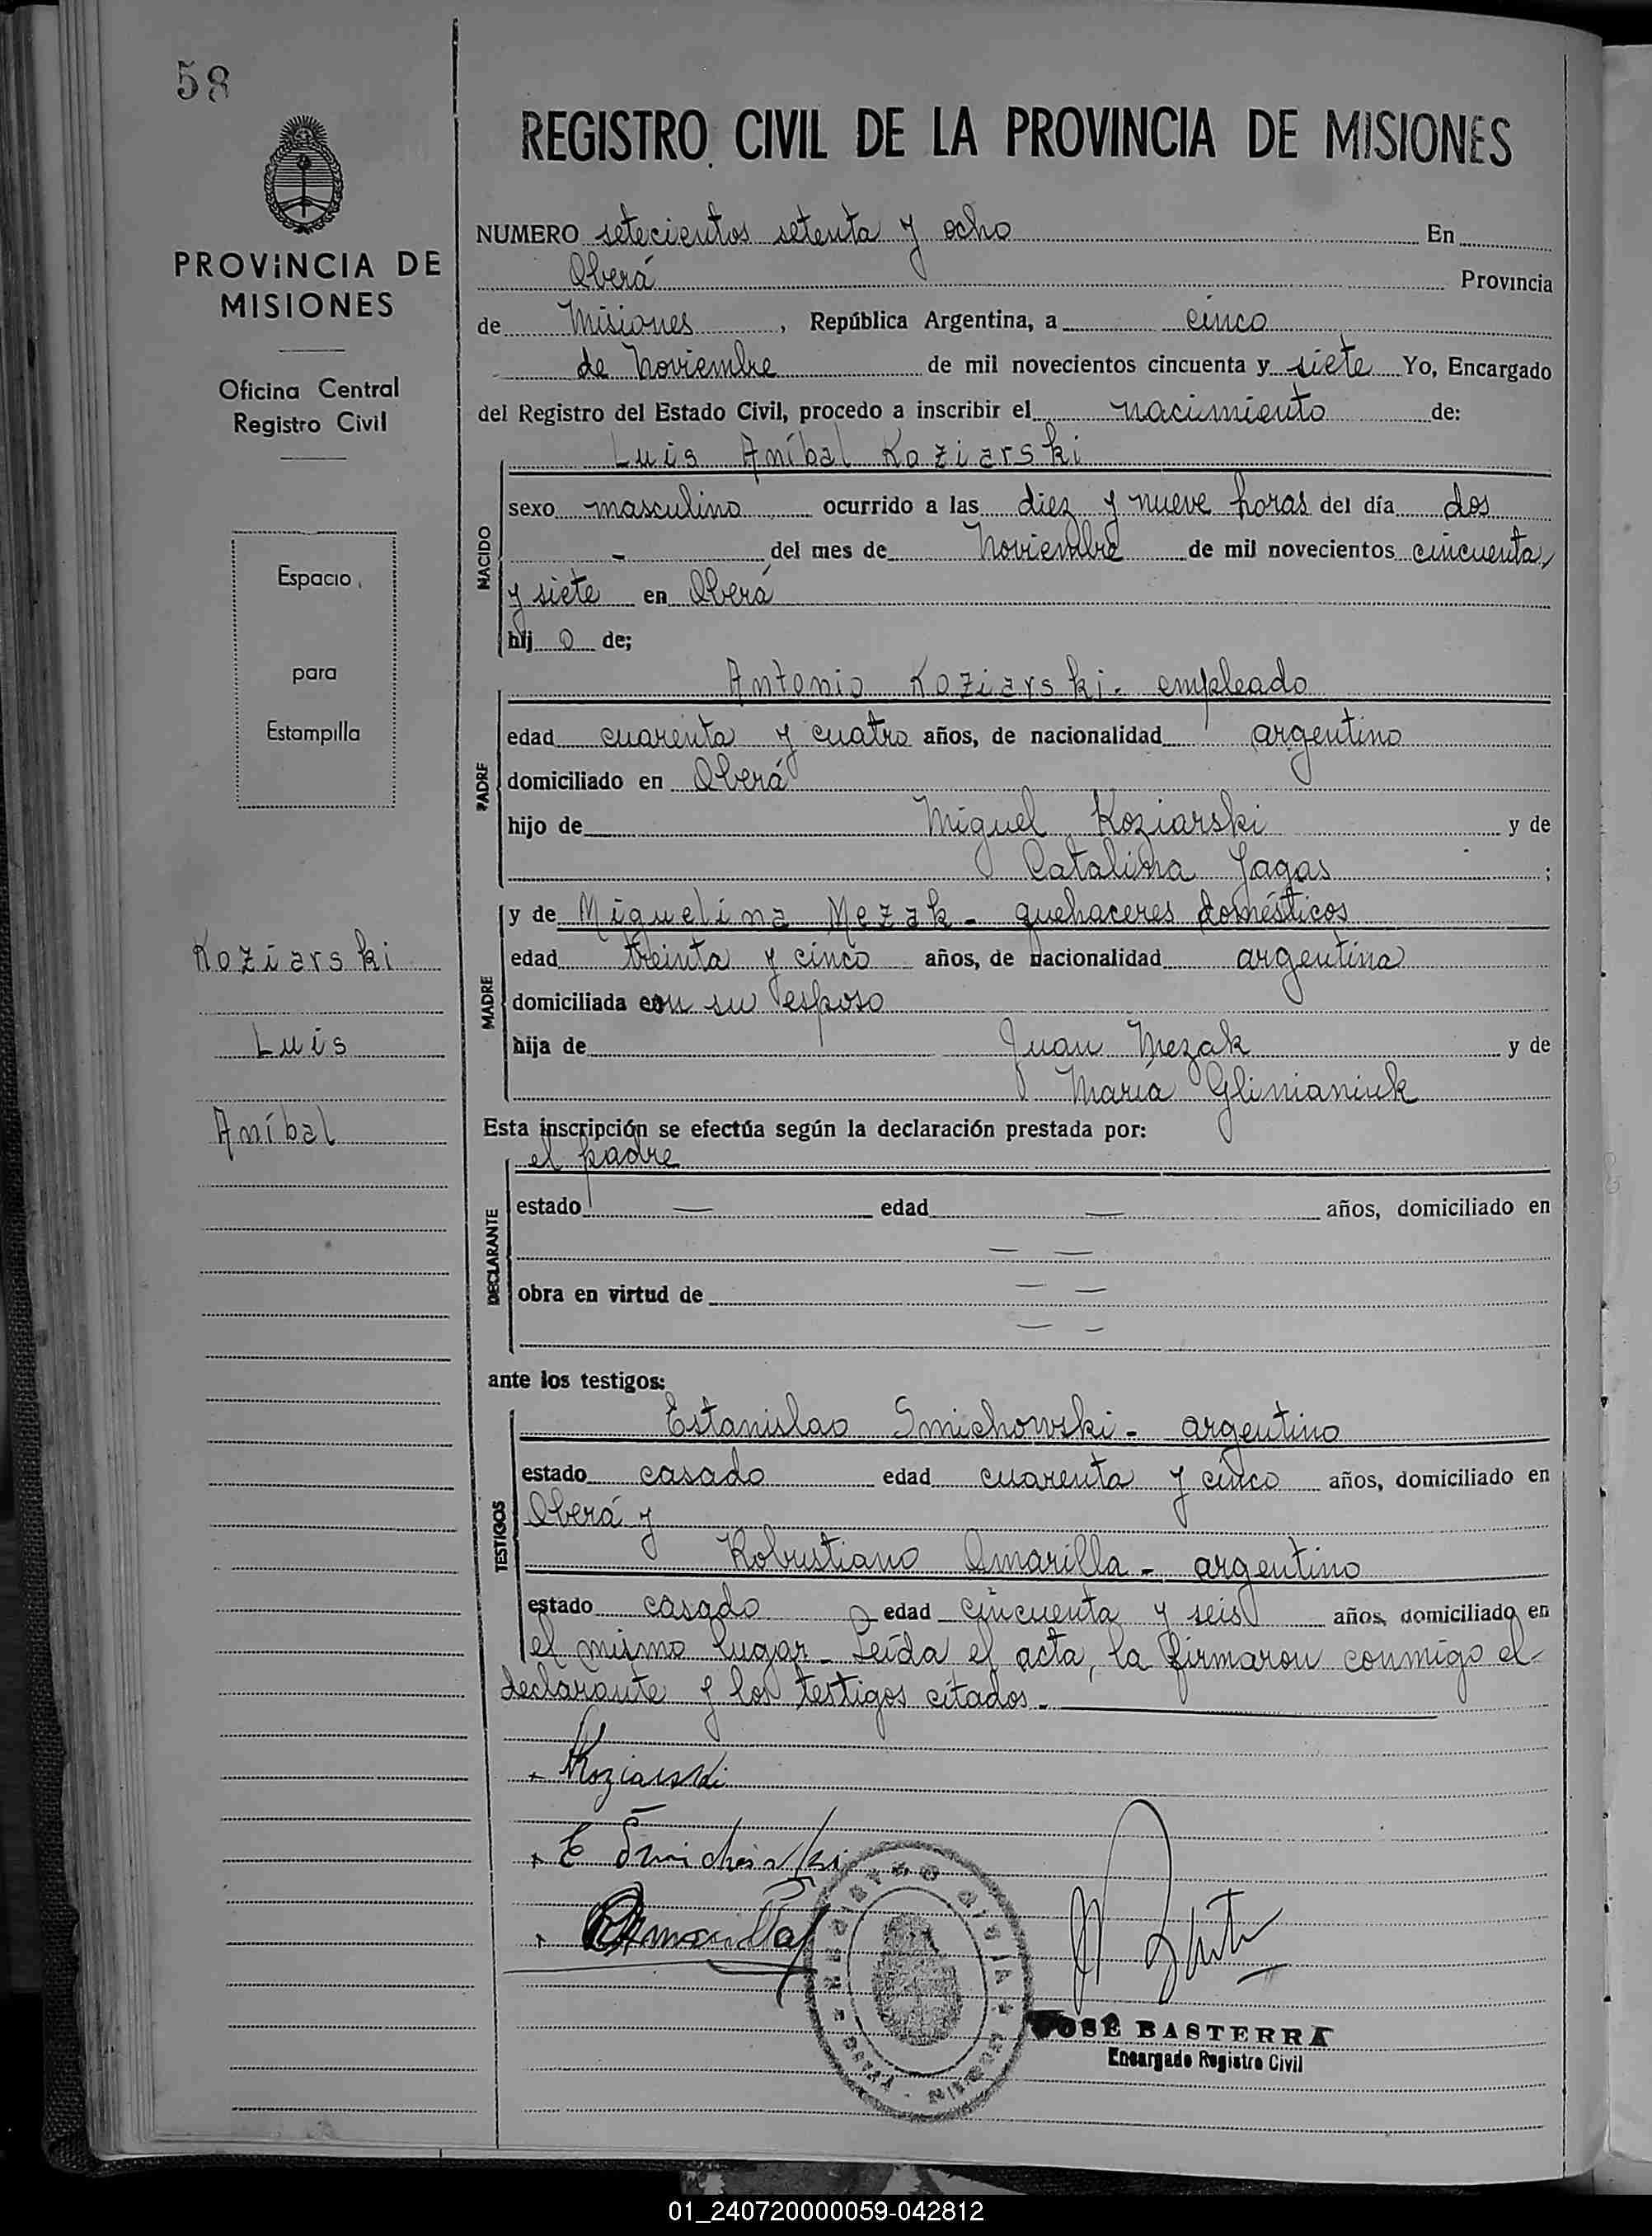 58
REGISTRO CIVIL DE LA PROVINCIA DE MISIONES
PROVINCIA DE
MISIONES
Oficina Central
Registro Civil
Espacio
para
Estampilla
Koziarski
Luis
Aníbal
NUMERO setecientos setenta y ocho En
Oberá Provincia
de Misiones, República Argentina, a cinco
de Noviembre de mil novecientos cincuenta y siete Yo, Encargado
del Registro del Estado Civil, procedo a inscribir el nacimiento de:
Luis Aníbal Koziarski
NACIDO
sexo masculino ocurrido a las diez y nueve horas del día dos
- del mes de Noviembre de mil novecientos cincuenta
y siete en Oberá
hij o de;
PADRE
Antonio Koziarski - empleado
edad cuarenta y cuatro años, de nacionalidad argentino
domiciliado en Oberá
hijo de Miguel Koziarski y de
Catalina Jagas ;
MADRE
y de Miguelina Mezak - quehaceres domésticos
edad treinta y cinco años, de nacionalidad argentina
domiciliada con su esposo
hija de Juan Mezak y de
María Glinianiuk
Esta inscripción se efectúa según la declaración prestada por:
DECLARANTE
el padre
estado — edad — años, domiciliado en
— —
obra en virtud de — —
— —
ante los testigos:
TESTIGOS
Estanislao Smichowski - argentino
estado casado edad cuarenta y cinco años, domiciliado en
Oberá y
Robustiano Amarilla - argentino
estado casado edad cincuenta y seis años, domiciliado en
el mismo lugar - Leída el acta, la firmaron conmigo el
declarante y los testigos citados.-
Koziarski
E Smichowski
Amarilla
JOSÉ BASTERRA
Encargado Registro Civil
01_240720000059-042812